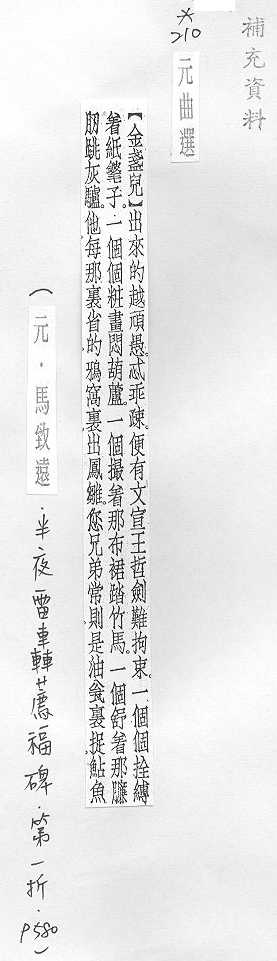 補充資料
*210
元曲選
【金盞兒】出來的越頑愚。忒乖疎。便有文宣王哲劍難拘束。一個個拴縛
着紙毦子。一個個粧畫悶葫蘆。一個撮着那布裙踏竹馬。一個舒着那臁
肕跳灰驢。他每那裏省的鴉窩裏出鳳雛。您兄弟常則是油瓮裏捉鮎魚
(元·馬致遠·半夜雷轟薦福碑·第一折·P580)